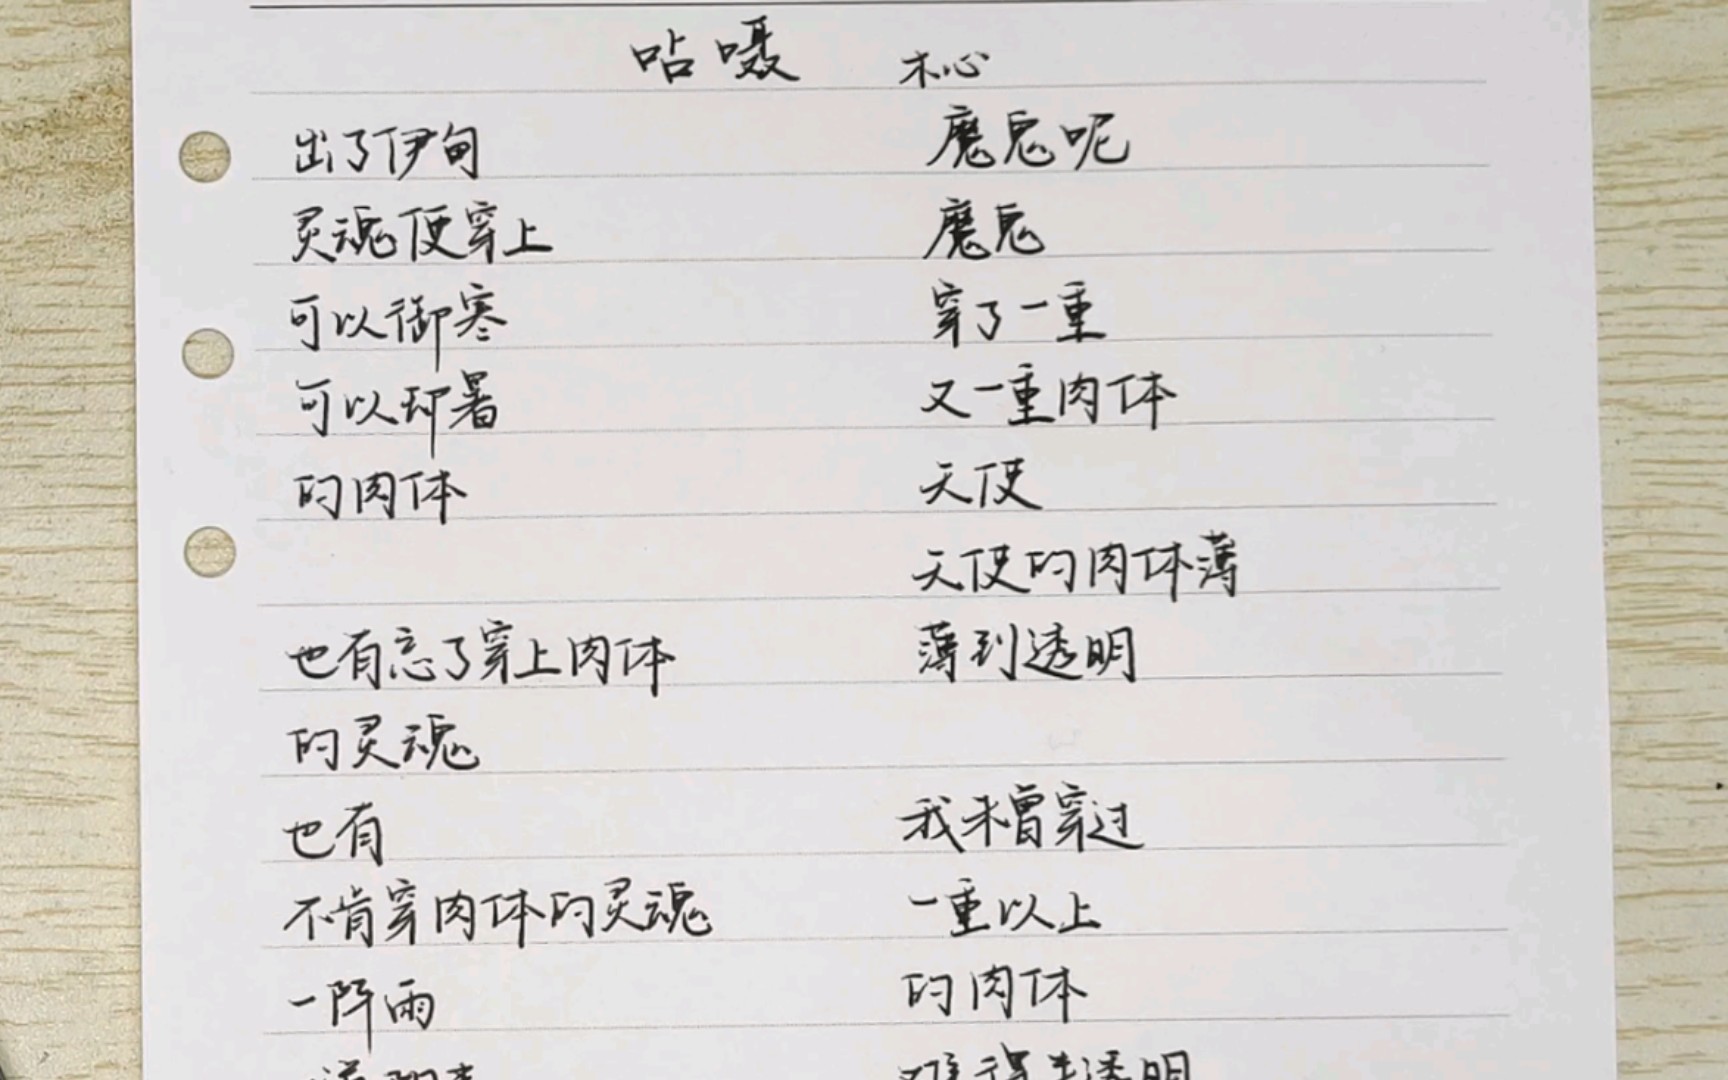 呫嗫 木心
出了伊甸
灵魂便穿上
可以御寒
可以却暑
的肉体
也有忘了穿上肉体
的灵魂
也有
不肯穿肉体的灵魂
一阵雨
魔鬼呢
魔鬼
穿了一重
又一重肉体
天使
天使的肉体薄
薄到透明
我未曾穿过
一重以上
的肉体
难得半透明